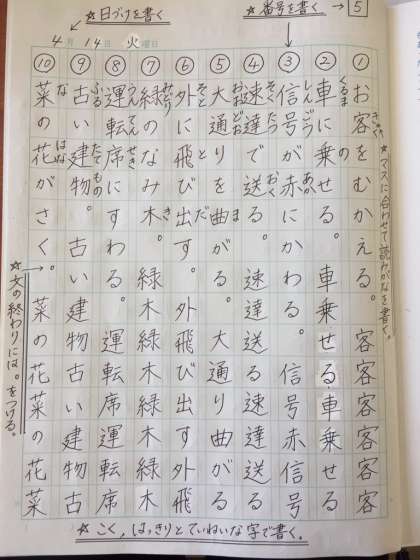 ☆日づけを書く
☆番号を書く → 5
4月14日火曜日
①お客をむかえる。 客客客客客客
きゃく
②車に乗せる。 車乗せる車乗せる
くるま の
③信号が赤にかわる。 信号赤信号
しんごう あか
④速達で送る。 速達送る速達送る
そくたつ おく
⑤大通り曲がる。 大通り曲がる
おおどお ま
⑥外に飛び出す。 外飛び出す外飛
そと と だ
⑦緑のなみ木。 緑木緑木緑木緑木
みどり き
⑧運転席にすわる。 運転席運転席
うんてんせき
⑨古い建物。 古い建物古い建物古
ふる たてもの
⑩菜の花がさく。 菜の花菜の花菜
な はな
☆マスに合わせて読みがなを書く。
☆文の終わりには。をつける。
☆こく,はっきりとていねいな字で書く。